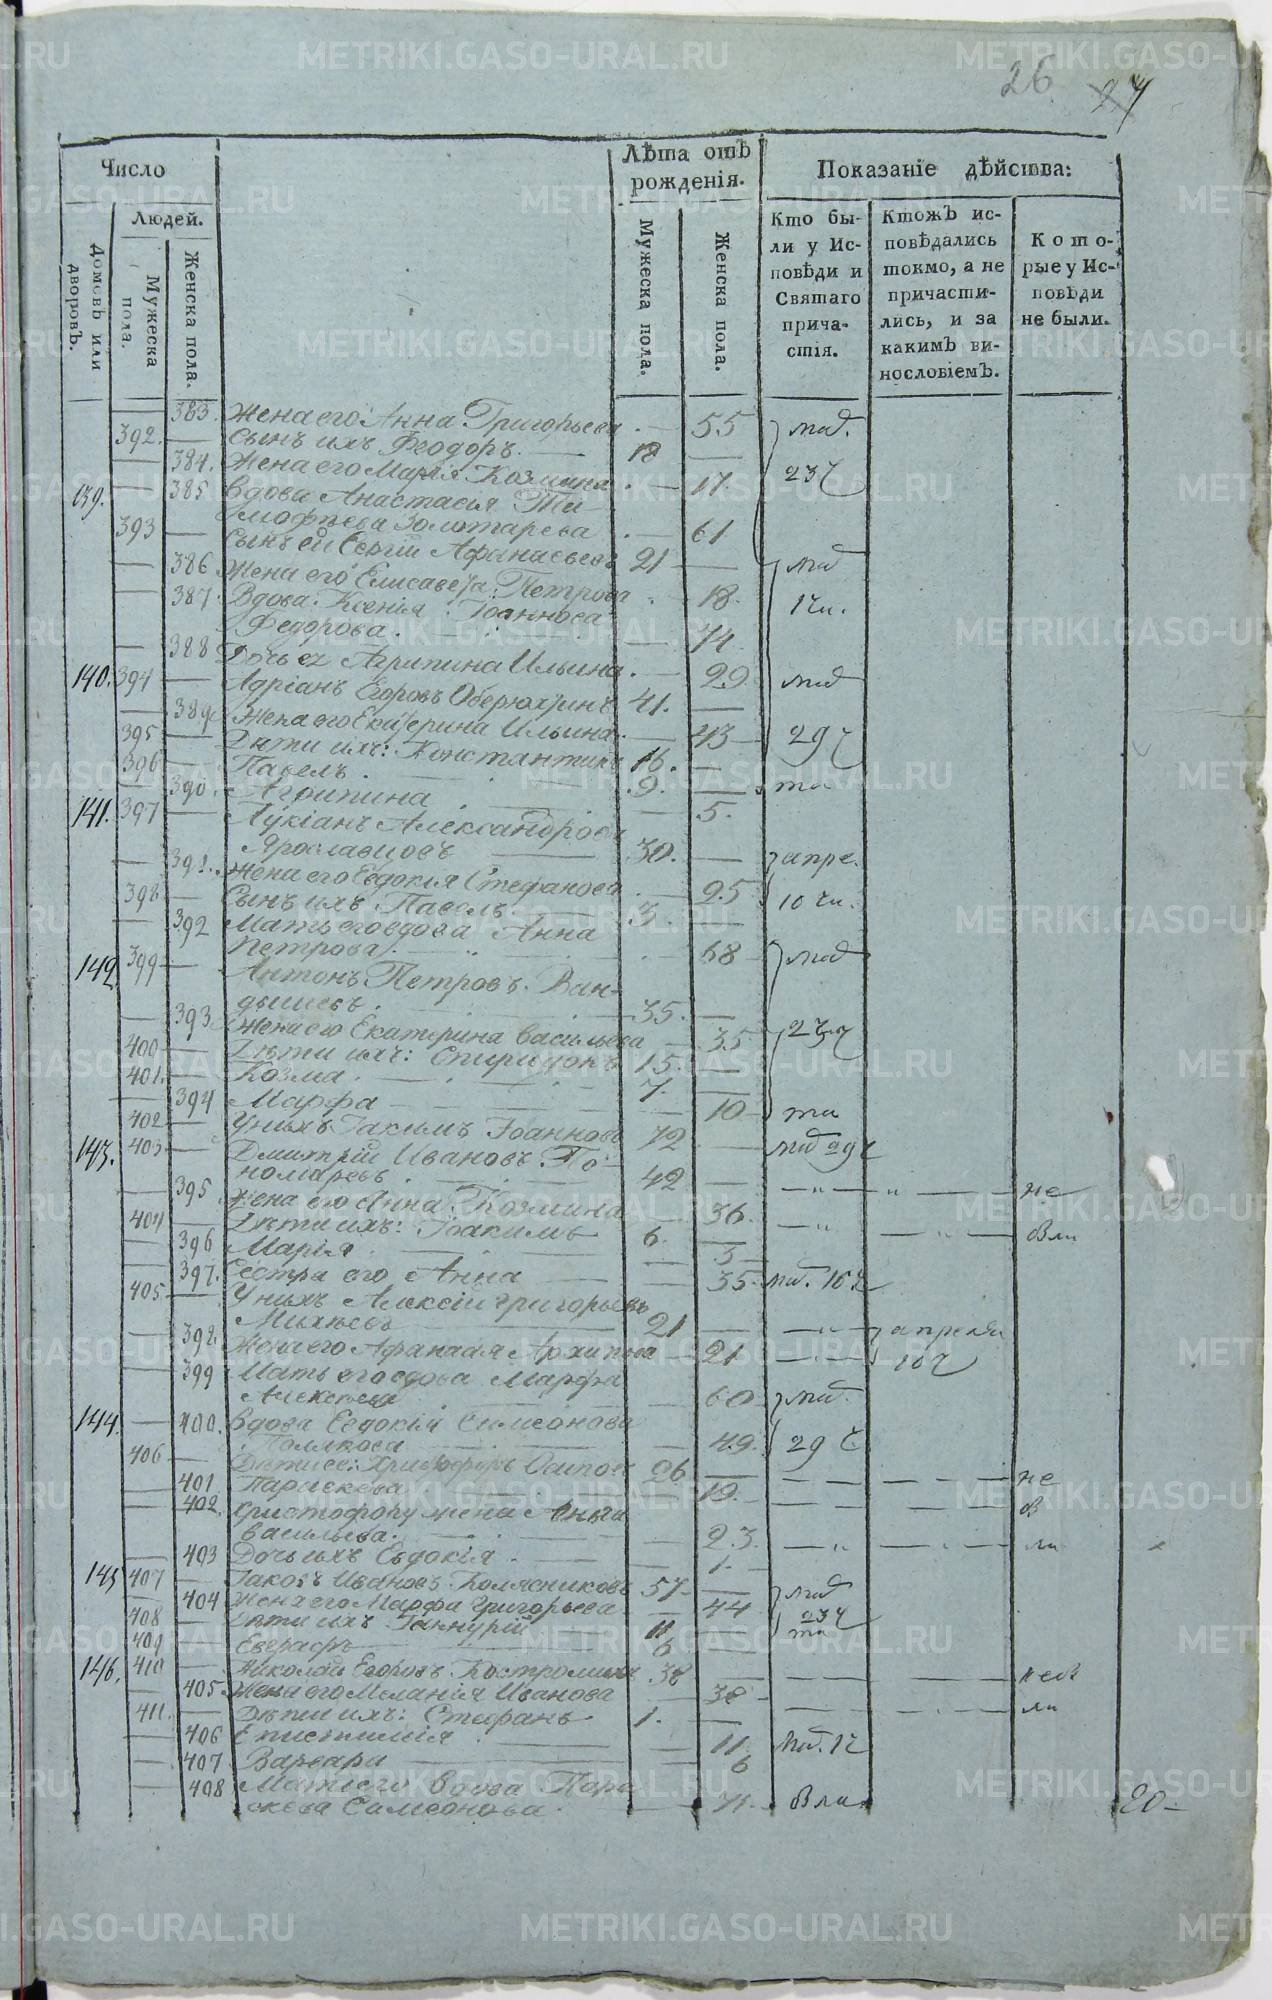 26 27
Число
Лѣта отъ рожденія.
Показаніе дѣйства:
Людей.
Домовъ или дворовъ.
Мужеска пола.
Женска пола.
Мужеска пола.
Женска пола.
Кто были у Исповѣди и Святаго причастія.
Ктожъ исповѣдались токмо, а не причастились, и за какимъ винословіемъ.
Которые у Исповѣди не были.
383. Жена его Анна Григорьева 55
392. Сынъ ихъ Феодоръ. 18
384. Жена его Марія Козмина 17. 23 ч
139. 385 Вдова Анастасія Ти-
мофѣева Золотарева 61
393 Сынъ ей Сергій Афанасьевъ 21
386 Жена его Елисавета Петрова 18.
387. Вдова Ксенія Іоаннова
Федорова. 74.
388 Дочь ея Агрипина Ильина 29
140. 394 Адріанъ Егоровъ Оберюхтинъ 41.
389. Жена его Екатерина Ильина 43 29 ч
395 Дѣти ихъ: Константинъ 16.
396 Павелъ. 9. та
390. Агрипина 5.
141. 397 Лукіанъ Александровъ
Ярославцовъ 30. апре.
391. Жена его Евдокія Стефанова 25 10 чи.
398 Сынъ ихъ Павелъ 3
392 Мать его вдова Анна
Петрова 68
142. 399 Антонъ Петровъ Ван-
дышевъ. 35.
393 Жена его Екатерина Васильева 35 23 ч
400 Дѣти ихъ: Спиридонъ 15.
401. Козма 7.
394 Марфа 10 та
402 У нихъ Іакимъ Іоанновъ 72
143. 403 Дмитрій Ивановъ По-
номаревъ 42 не
395 Жена его Анна Козмина 36
404 Дѣти ихъ: Іоакимъ 6. бли
396 Марія 3
397. Сестра его Анна 35
405 У нихъ Алексій Григорьевъ
21 апреля
398. Жена его Афанасія Архипова 21 10 ч
399 Мать его вдова Марфа
Алексѣева 60
144. 400. Вдова Евдокія Симеонова
Полякова 49. 29 ч
406 Христофоръ Осиповъ 26 не
401 Параскева 19. б
402. Христофору жена Анна
Васильева. 23. ли
403 Дочь ихъ Евдокія 1.
145 407 Іаковъ Ивановъ Колясниковъ 57
404 Жена его Марфа Григорьева 44 23 ч
408 Дѣти ихъ 11 та
409 Евграфъ 6
146. 410 Николай Егоровъ Костроминъ 38 не б
405 Жена его Меланія Иванова 38 ли
411. Дѣти ихъ: Стефанъ 1.
406 Епистимія 11.
407 Варвара 6
408 Мать его вдова Пара
скева Симеонова. бли 20